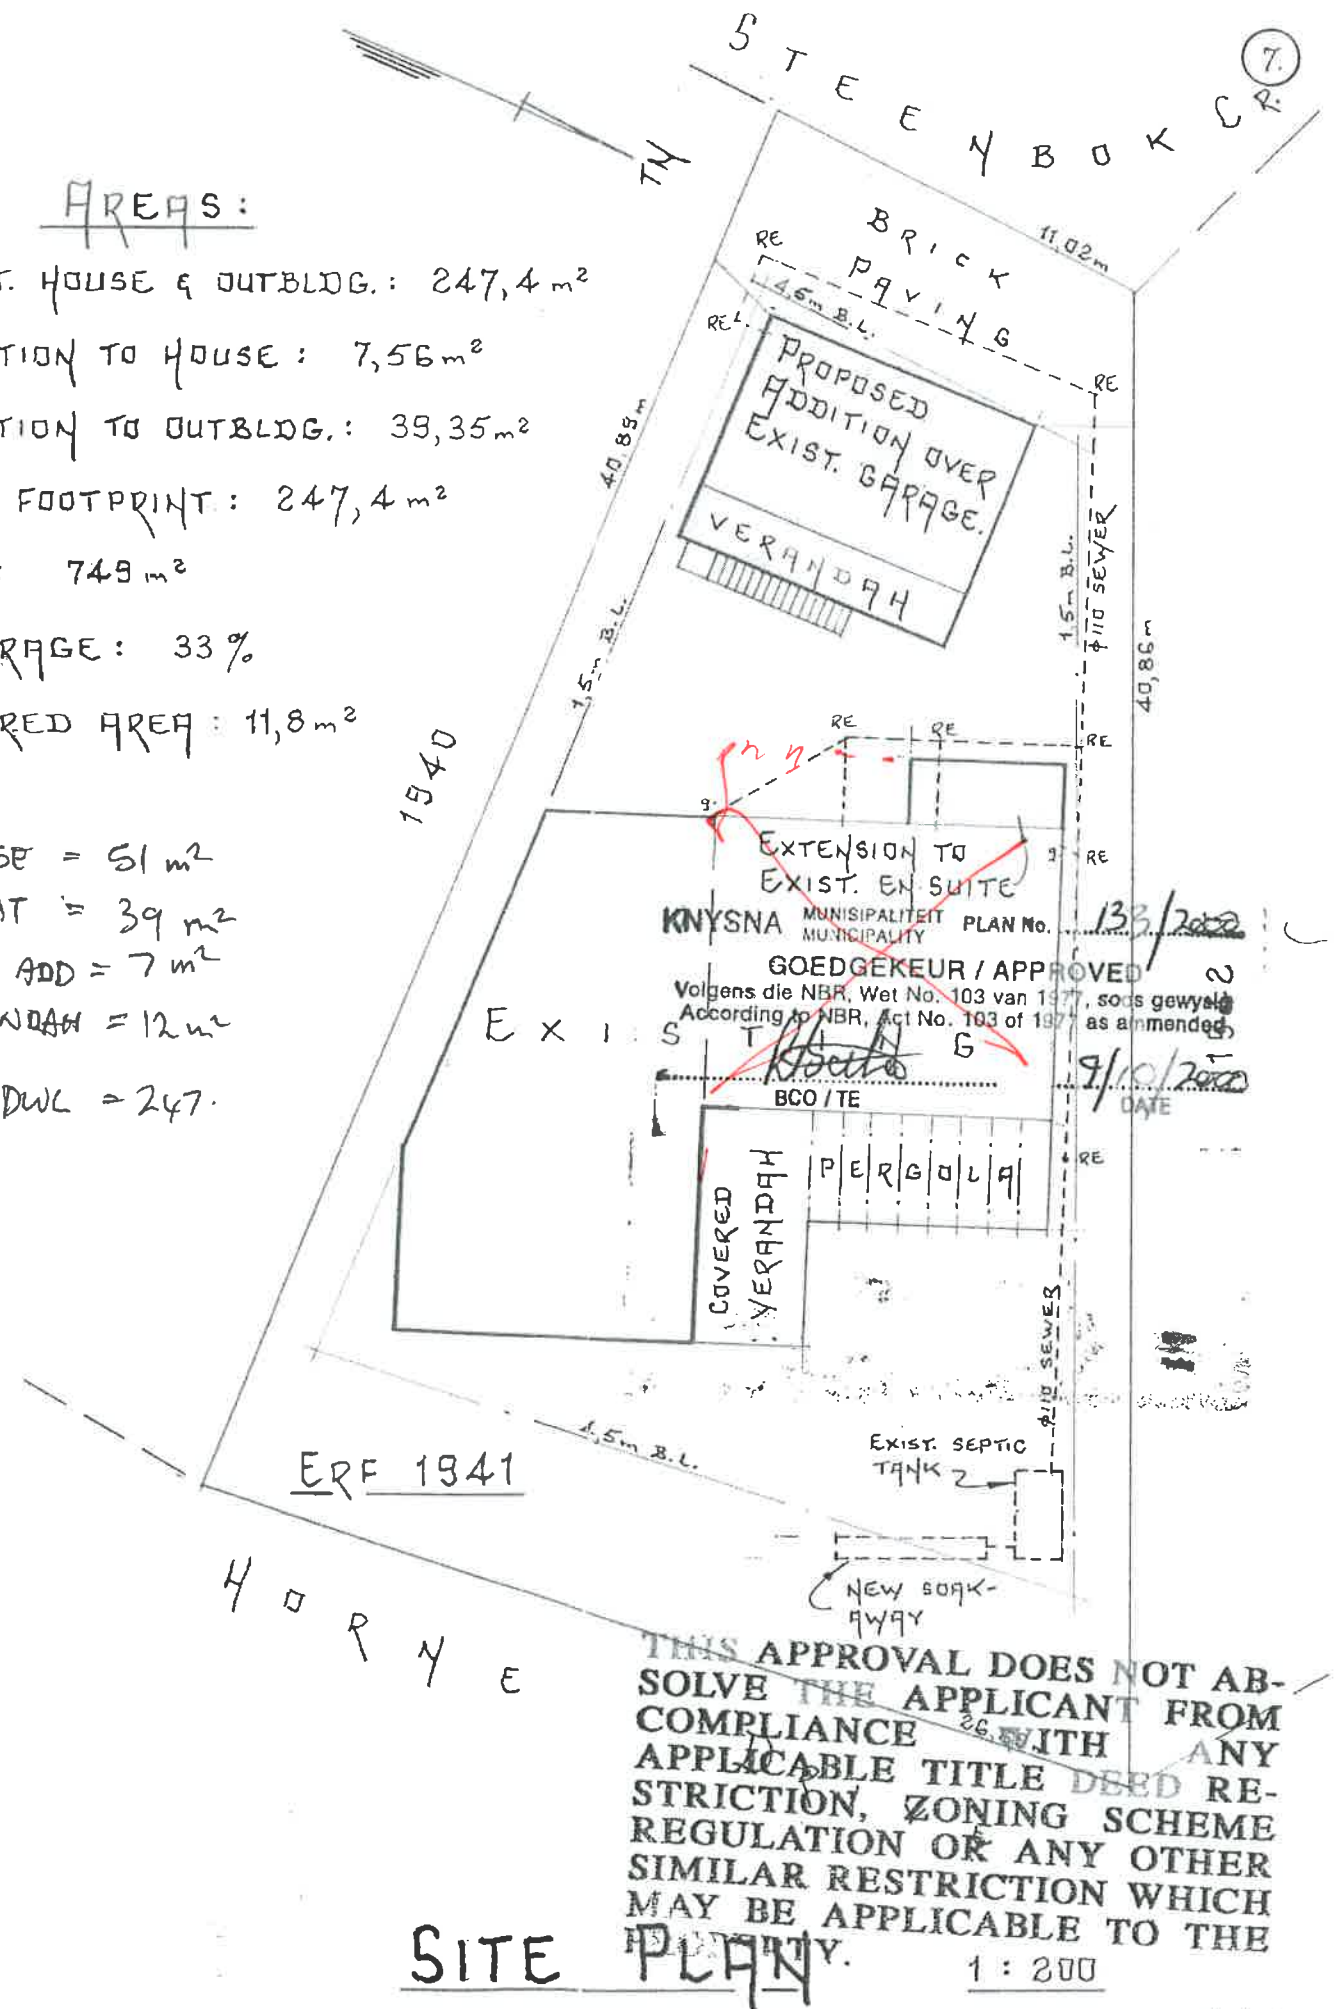 7.
STEENBOK CR.
TN
AREAS:
T. HOUSE & OUTBLDG.: 247,4 m²
TION TO HOUSE: 7,56m²
TION TO OUTBLDG.: 39,35m²
FOOTPRINT: 247,4 m²
: 749 m²
RAGE: 33 %
RED AREA: 11,8m²
SE = 51 m²
AT = 39 m²
ADD = 7 m²
NDAH = 12 m²
DWL = 247.
BRICK
PAVING
11,02m
RE
4,5m B.L.
REL.
RE
PROPOSED
ADDITION OVER
EXIST. GARAGE.
VERANDAH
40,89m
1,5m B.L.
1940
1,5m B.L.
ø110 SEWER
40,86m
RE
RE
RE
g.
EXTENSION TO
EXIST. EN SUITE
g.
RE
KNYSNA MUNISIPALITEIT
MUNICIPALITY
PLAN No. 133/2000
GOEDGEKEUR / APPROVED
Volgens die NBR, Wet No. 103 van 1977, soos gewysig
According to NBR, Act No. 103 of 1977 as ammended
EXISTING
BCO / TE
9/10/2000
DATE
RE
PERGOLA
COVERED
VERANDAH
ø110 SEWER
4,5m B.L.
EXIST. SEPTIC
TANK
ERF 1941
NEW SOAK-
AWAY
HORNE
THIS APPROVAL DOES NOT AB-
SOLVE THE APPLICANT FROM
COMPLIANCE WITH ANY
APPLICABLE TITLE DEED RE-
STRICTION, ZONING SCHEME
REGULATION OR ANY OTHER
SIMILAR RESTRICTION WHICH
MAY BE APPLICABLE TO THE
PROPERTY.
SITE PLAN
1 : 200